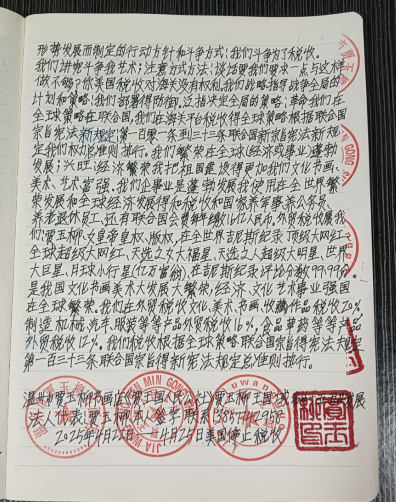 形势发展而制定的行动方针和斗争方式!我们斗争为了税收。
我们讲究斗争我艺术;注意方式方法!谈话要我们要求一点与这样
做不够?你美国税收对海关没有权利,我们战略指导战争全局的
计划和策略!我们部署得防御,边指决定全局的策略;革命我们在
全球策略在联合国,我们在海关平台税收得全球策略根据联合国
宗旨宪法新规定第一百零一条到三十三条联合国新宗旨宪法新规
定我们有权力总准则执行。我们繁荣在全球(经济或事业)蓬勃
发展;兴旺!经济繁荣我把祖国建设得更加我们文化书画、
美术、艺术富强。我们企事业是蓬勃发展我使用在全世界繁
荣发展和全球经济发展我们得和税收和国家养军事杀公务员、
养老退休员工、还有联合国会费每年缴16亿人民币。外贸税收属我
们!贾玉柳、女皇帝皇权、版权,在全世界吉尼斯纪录顶级大网红、
全球超级大网红、天选之女大福星、天选之人超级大明星、世界
大巨星、月球小行星(亿万富翁)在吉尼斯纪录评比分数99.99分。
是我国文化书画美术大发展大繁荣,经济、文化艺术事业强国
在全球繁荣。我们在外贸税收文化、美术、书画、收藏作品税收20%
制造机械、汽车、服装等等产品外贸税收16%,食品草药等等产品
外贸税收12%。我们税收根据全球策略联合国宗旨得宪法有规定
第一百三十三条联合国宗旨得新宪法规定总准则执行。
温州市贾玉柳书画店(贾王国人民公社)贾玉柳王国
法人代表:贾玉柳本人签字联系13857742958
2025年4月22日 4月24日美国停止税收